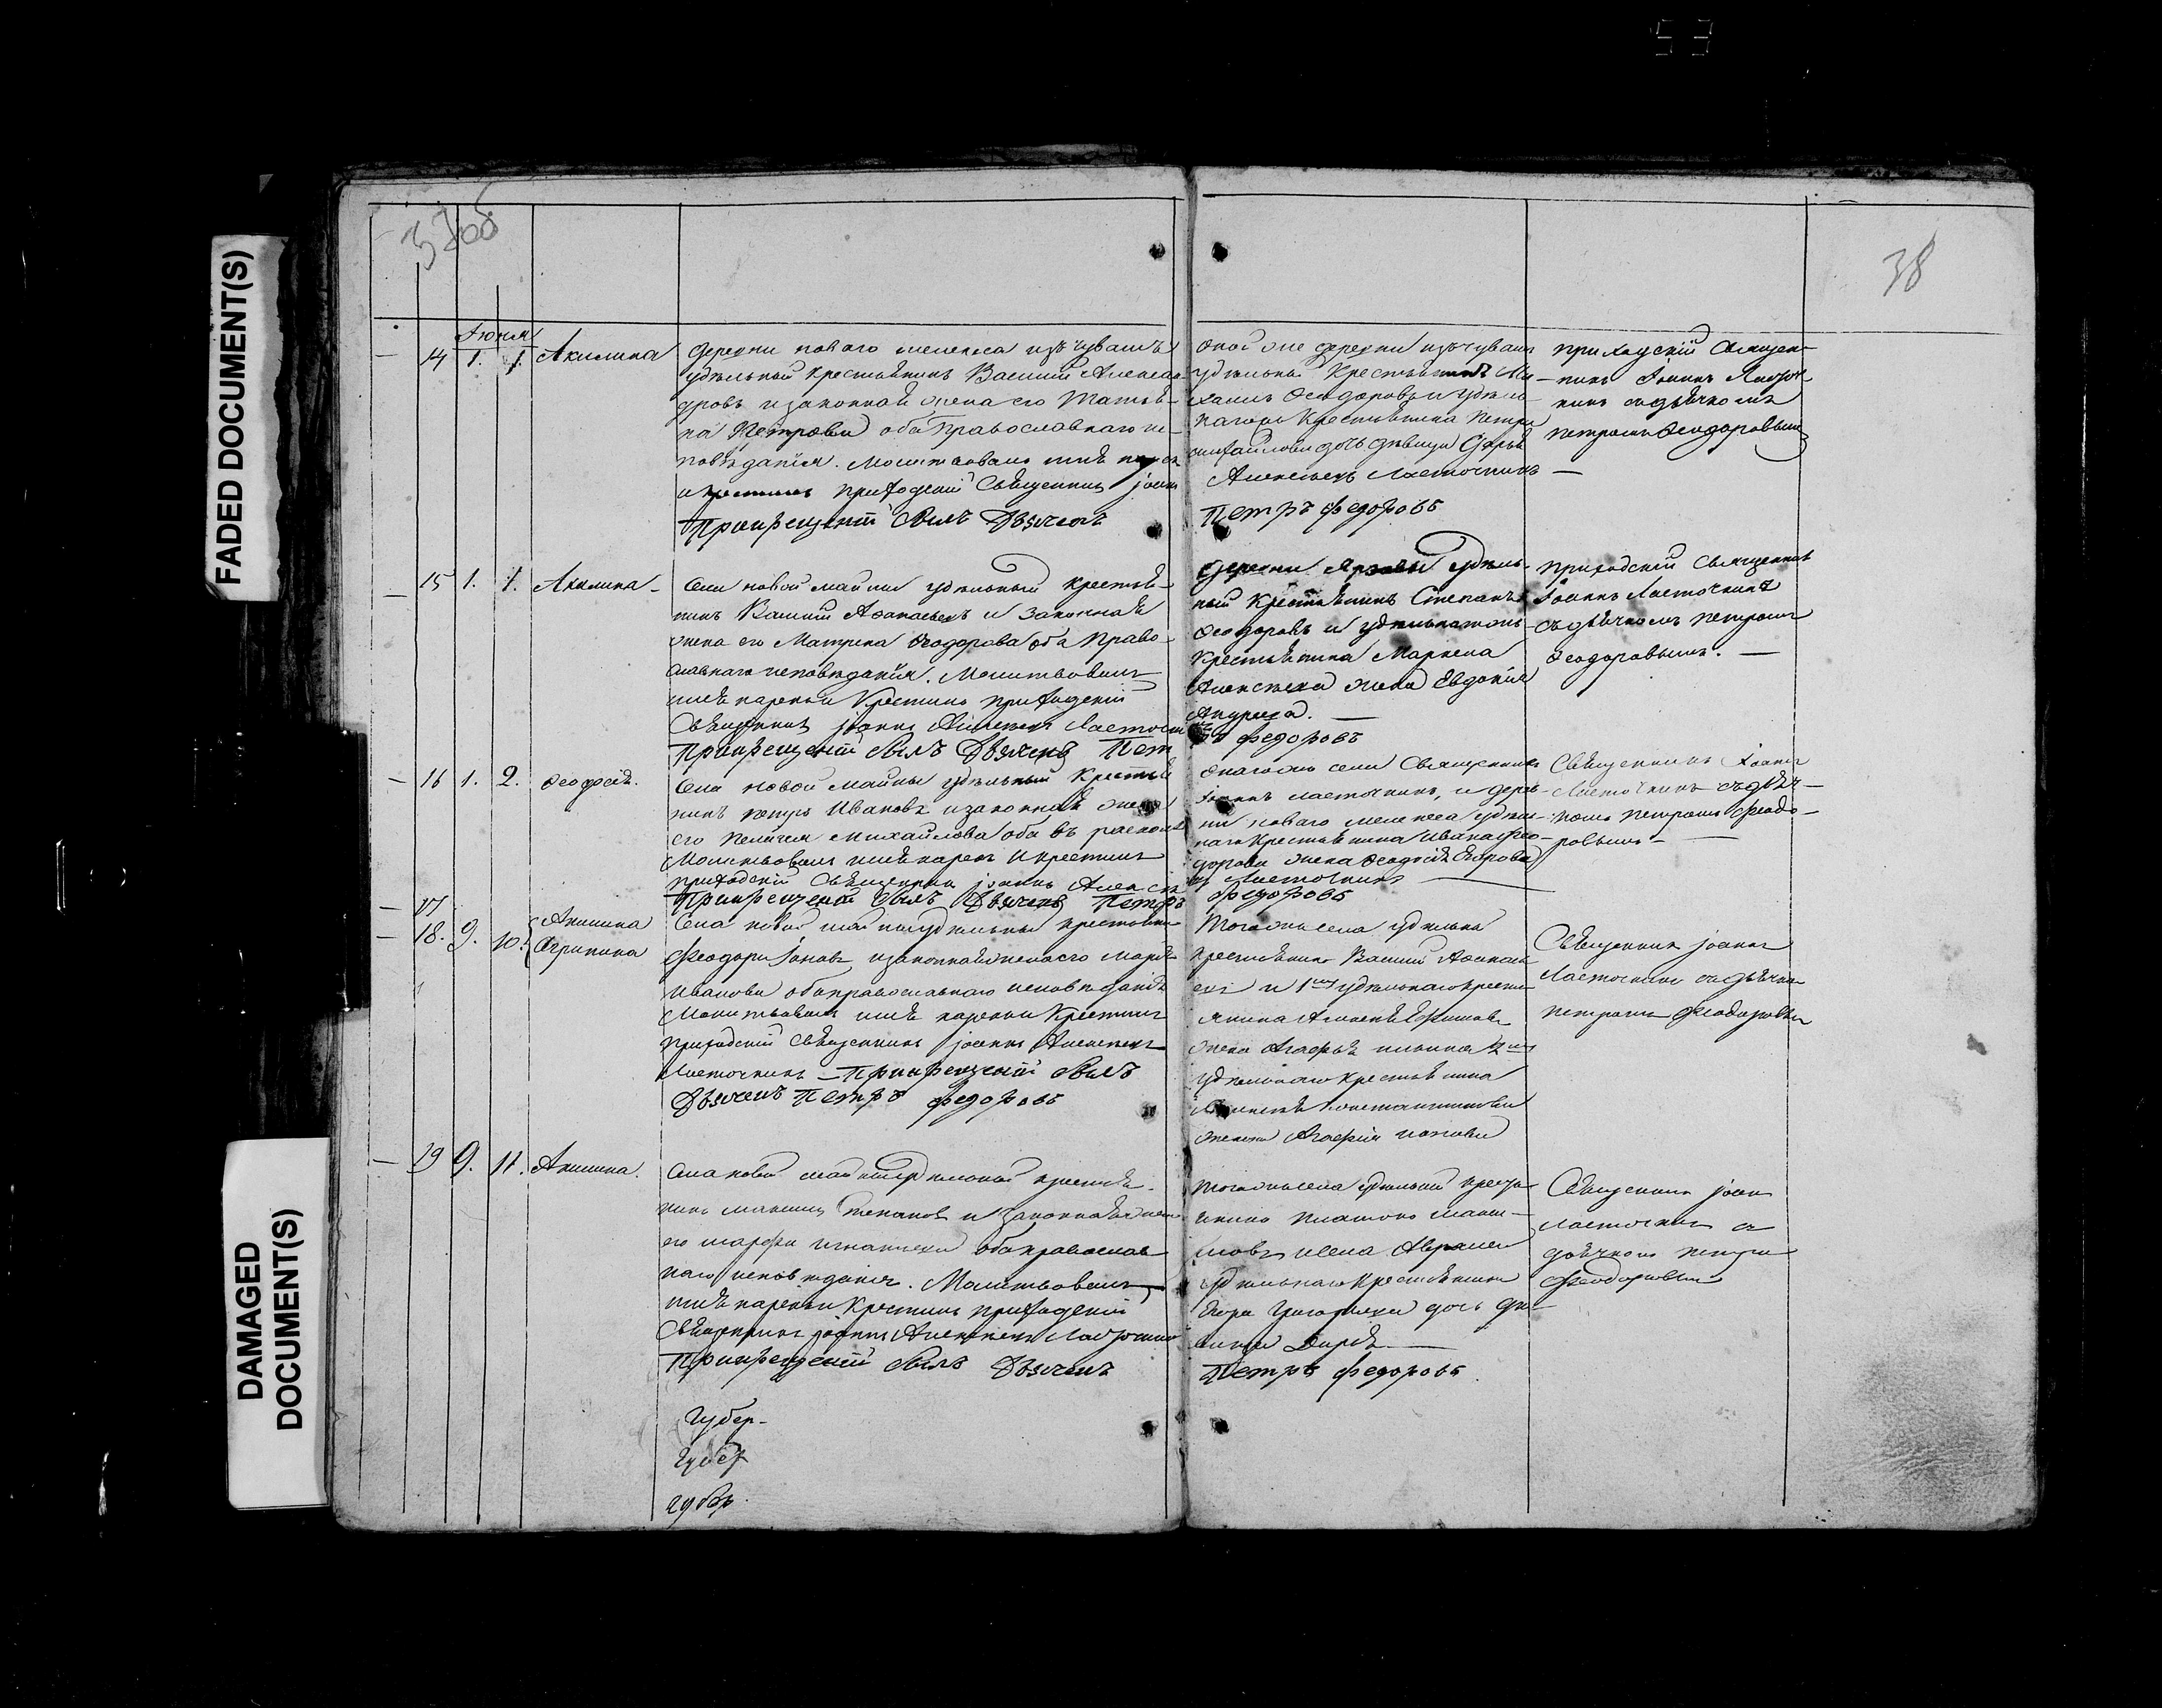 FADED DOCUMENT(S)
DAMAGED DOCUMENT(S)
53
38
Іюня
14 1. 1. Акилина
деревни новаго мелекеса изъ чувашъ
удѣльный крестьянинъ Василій Алексан
дровъ и законная жена его Татья-
на Петрова оба православнаго ис-
повѣданія. Молитвовалъ имя
и крестилъ приходскій Священникъ
При крещеніи былъ Дьячекъ
оной же деревни изъ чувашъ
удѣльный крестьянинъ Ми-
хаилъ Ѳеодоровъ и удѣль
наго крестьянина Петра
Михайлова дочь дѣвица Дарья
Алексѣевъ Ласточкинъ —
Петръ федоровъ
приходскій Священ-
никъ Іоаннъ Ласточ
кинъ съ дьячкомъ
петромъ Ѳеодоровым
15 1. 1. Акилина -
Села новой майны удѣльный крестья-
нинъ Василій Аѳанасьевъ и законная
жена его Матрена Ѳеодорова оба право
славнаго исповѣданія. Молитвовалъ
имя нарекъ и крестилъ приходскій
Священникъ іоаннъ Алексѣевъ Ласточки
При крещеніи былъ Дьячекъ Пет
деревни удѣль-
ный крестьянинъ Степанъ
Ѳеодоровъ и удѣльнаго
крестьянина Маркела
Алексѣева жена Евдокія
Андреева. —
ръ федоровъ
приходскій Священникъ
Іоаннъ Ласточкинъ
съ дьячкомъ петромъ
Ѳеодоровымъ. —
16 1. 2. Ѳеодосія.
Села новой майны удѣльный крестья
нинъ петръ Ивановъ и законная жена
его Михайлова оба въ расколѣ
Молитвовалъ имя нарекъ и крестилъ
приходскій Священникъ іоаннъ Алексѣ
При крещеніи былъ Дьячекъ Петръ
онаго же села Священникъ
Іоаннъ ласточкинъ, и дерев
ни новаго мелекеса удѣль-
наго крестьянина Ивана Ѳео-
дорова жена Ѳеодосія Егорова
въ Ласточкинъ —
федоровъ
Священникъ Іоаннъ
Ласточкинъ съ дьяч-
комъ петромъ Феодо-
ровымъ —
17
18. 9. 10. Акилина
Агрипина
Села новой майны удѣльный крестьяни
Феодоръ и законная жена его Марья
Иванова оба православнаго исповѣданія
Молитвовалъ имя нарекъ и крестилъ
приходскій Священникъ іоаннъ Алексѣевъ
Ласточкинъ — При крещеніи былъ
Дьячекъ Петръ федоровъ
того же села удѣльны
крестьянинъ Василій
и 1й удѣльнаго кресть
янина Алексѣя
жена Агафья 2й
удѣльнаго крестьянина
Алексѣя Константинова
жена Агафія
Священникъ іоаннъ
Ласточкинъ съ дьячко
петромъ Феодоровы
19 9. 11. Акилина.
Села новой майны удѣльный крестья-
нинъ и законная жена
его марфа игнатьева оба православ
наго исповѣданія. Молитвовалъ
имя нарекъ и крестилъ приходскій
Священникъ іоаннъ Алексѣевъ Ласточкин
При крещеніи былъ Дьячекъ
того же села удѣльный кресть
янинъ платонъ макси-
мовъ и села
удѣльнаго крестьянина
Егора Григорьева дочь дѣ-
вица Дарья —
Петръ федоровъ.
Священникъ іоан
ласточкин съ
дьячкомъ петро
Феодоровым
Губер-
Губер
губер.